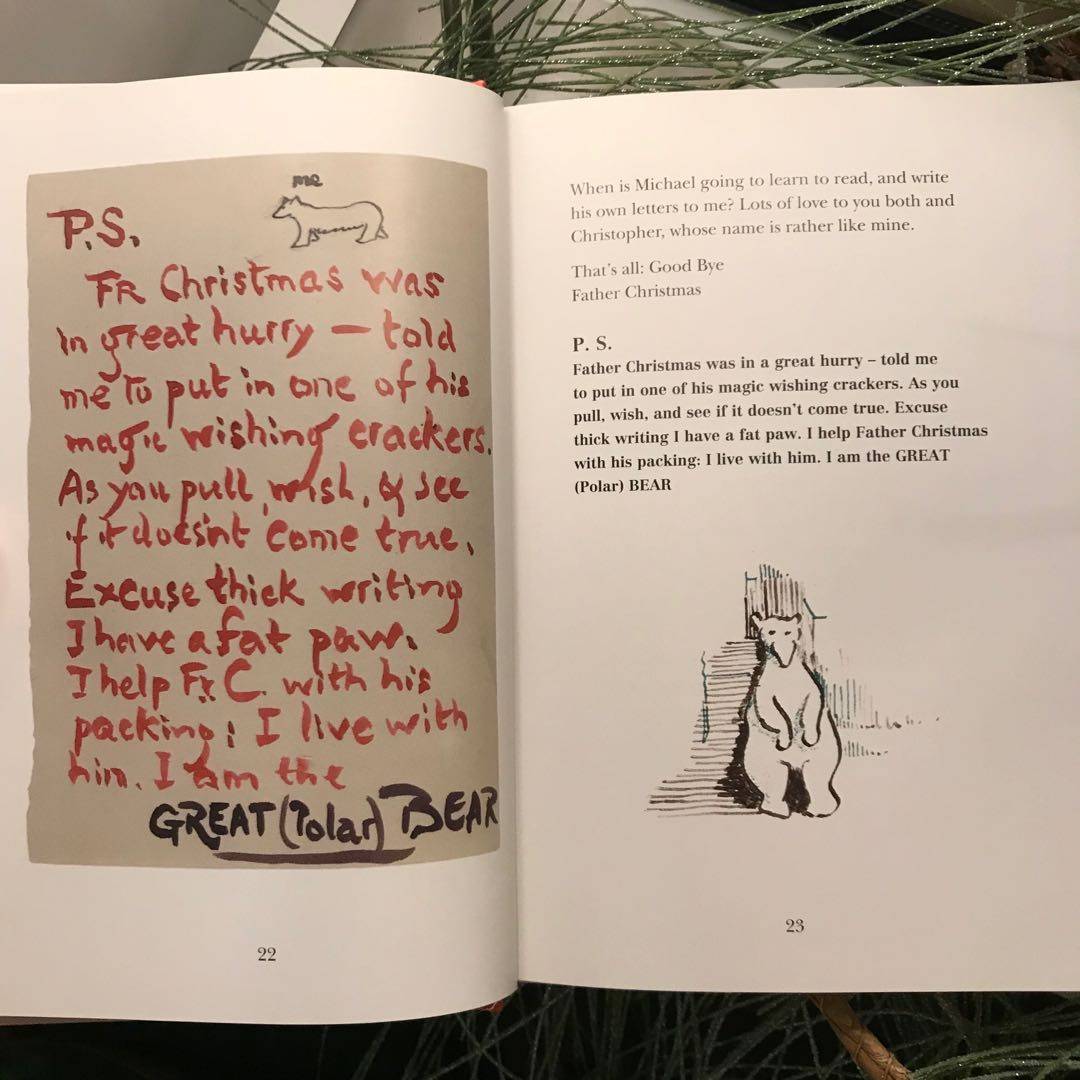 me
P.S.
FR Christmas was
in great hurry — told
me to put in one of his
magic wishing crackers.
As you pull, wish, & see
if it doesn't come true.
Excuse thick writing
I have a fat paw.
I help Fr C. with his
packing: I live with
him. I am the
GREAT (Polar) BEAR
22
When is Michael going to learn to read, and write
his own letters to me? Lots of love to you both and
Christopher, whose name is rather like mine.
That's all: Good Bye
Father Christmas
P. S.
Father Christmas was in a great hurry – told me
to put in one of his magic wishing crackers. As you
pull, wish, and see if it doesn't come true. Excuse
thick writing I have a fat paw. I help Father Christmas
with his packing: I live with him. I am the GREAT
(Polar) BEAR
23